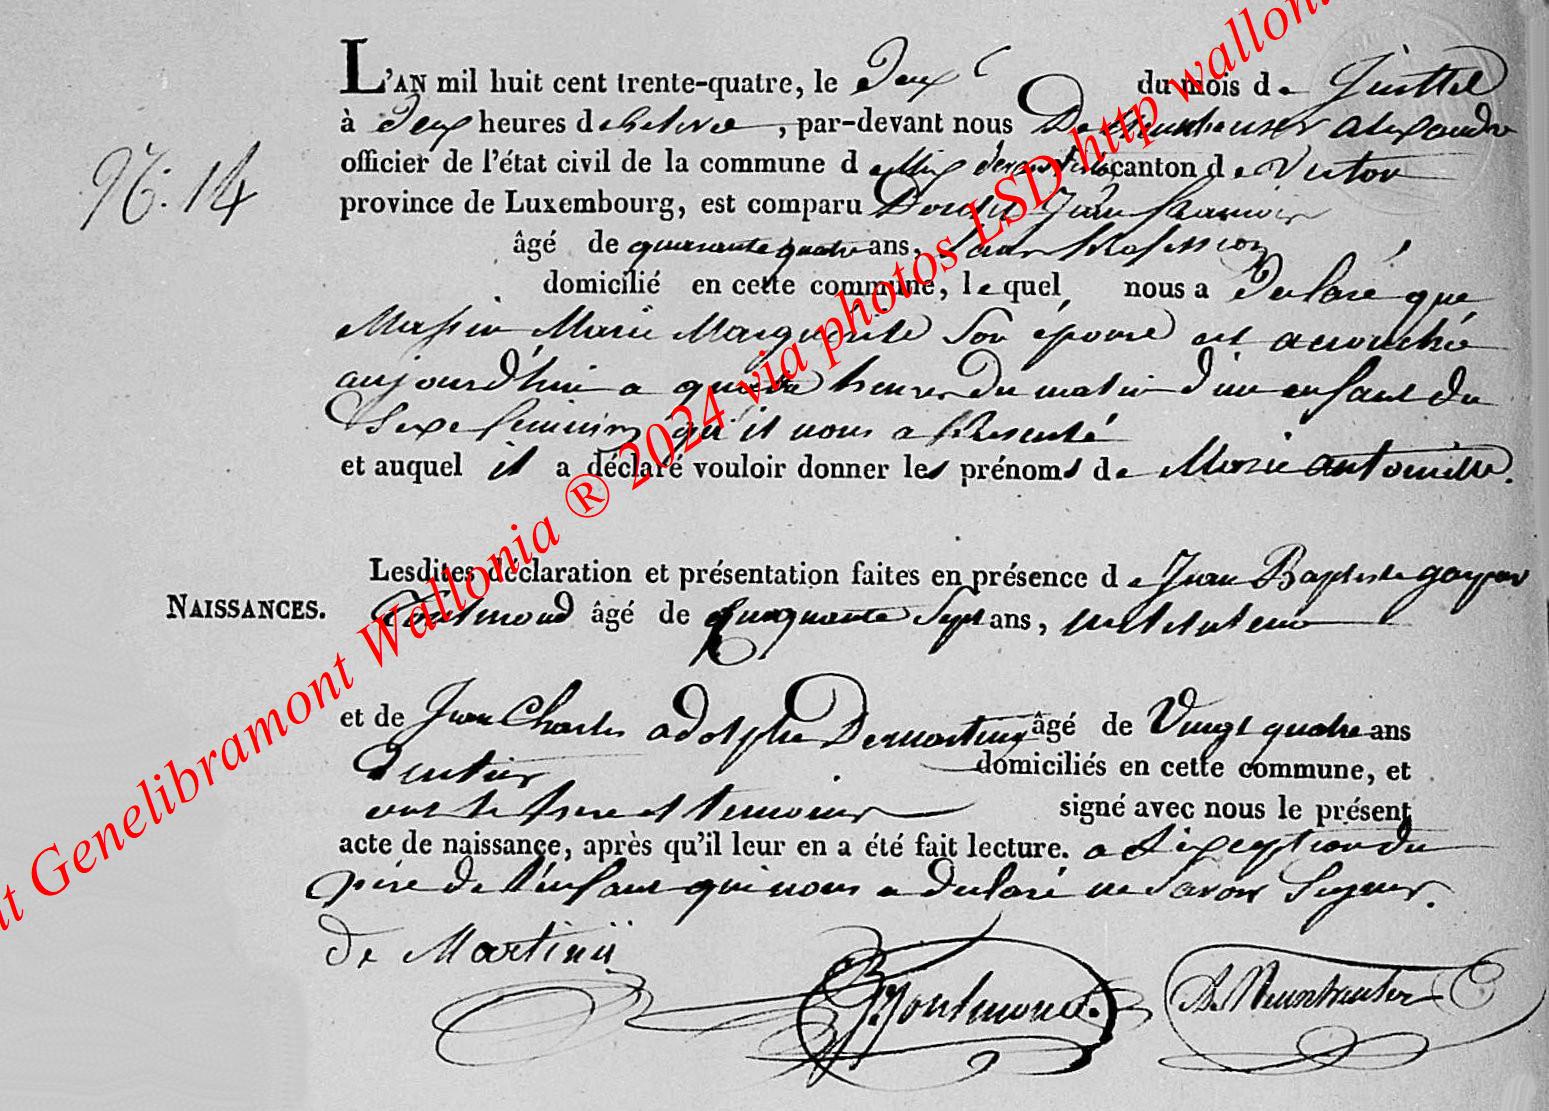 L'AN mil huit cent trente-quatre, le Deux du mois de Juillet
à Deux heures de , par-devant nous De Neunheuser alexandre
officier de l'état civil de la commune d canton de Virton
province de Luxembourg, est comparu Jean francois
N°. 14
âgé de quarante quatre ans, Sans profession
domicilié en cette commune, lequel nous a Declaré que
Massin Marie Marguerite Son épouse est accouchée
aujourd'hui a quatre heures Du matin d'un enfant du
Sexe feminin qu'il nous a presenté
et auquel il a déclaré vouloir donner les prénoms de Marie antoinette.
Lesdites déclaration et présentation faites en présence de Jean Baptiste gaspar
NAISSANCES.
Toutmond âgé de Cinquante Sept ans, instituteur
et de Jean Charles adolphe Demartiny âgé de Vingt quatre ans
Rentier domiciliés en cette commune, et
ont le pere et temoins signé avec nous le présent
acte de naissance, après qu'il leur en a été fait lecture. a L'exception du
père de L'enfant qui nous a Declaré ne Savoir Signer.
De Martinij
Toutmond. A Neunheuser
nt Genelibramont Wallonia ® 2024 via photos LSD http wallon